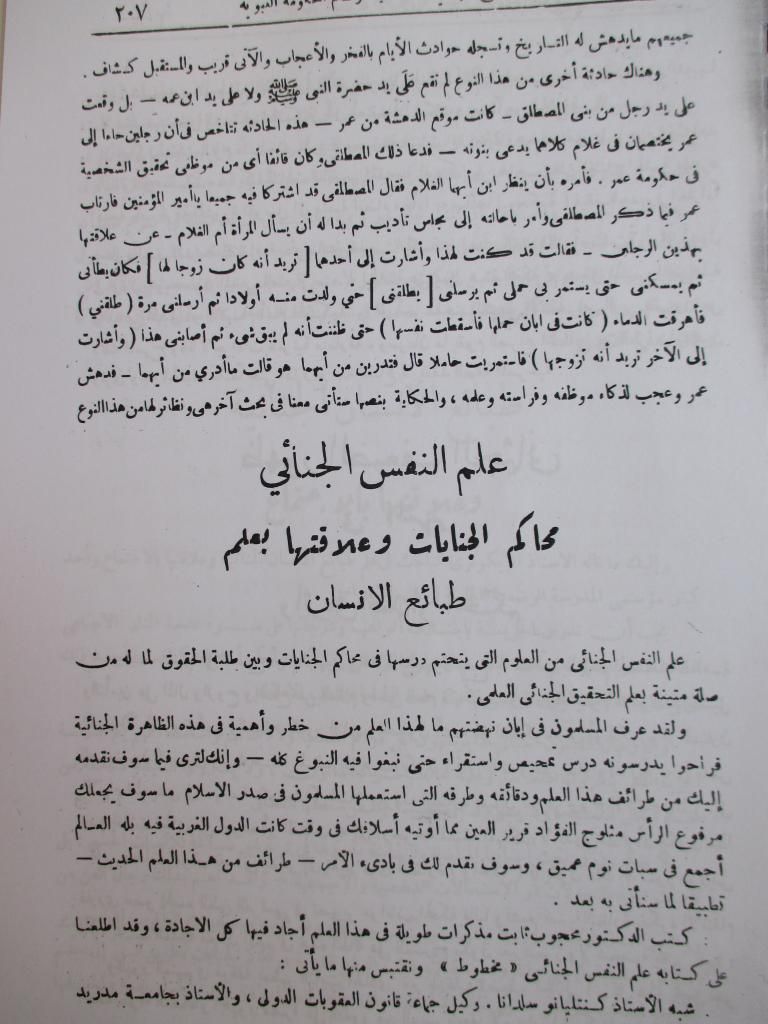 ٢٠٧
جميعهم مايدهش له التاريخ وتسجله حوادث الأيام بالفخر والأعجاب والآتى قريب والمستقبل كشاف .
وهناك حادثة أخرى من هذا النوع لم تقم على يد حضرة النبى ﷺ ولا على يد ابن عمه — بل وقعت
على يد رجل من بنى المصطلق — كانت موقع الدهشة من عمر — هذه الحادثه تتلخص فى أن رجلين جاءا إلى
عمر يختصمان فى غلام كلاهما يدعى بنوته — فدعا ذلك المصطلقى وكان قائفا أى من موظفى تحقيق الشخصية
فى حكومة عمر . فأمره بأن ينظر ابن أيهما الغلام فقال المصطلقى قد اشتركا فيه جميعا ياأمير المؤمنين فارتاب
عمر فيما ذكر المصطلقى وأمر باحالته إلى مجلس تأديب ثم بدا له أن يسأل المرأة أم الغلام — عن علاقتها
بهذين الرجلين — فقالت قد كنت لهذا وأشارت إلى أحدهما [ تريد أنه كان زوجا لها ] فكان يطأنى
ثم يمسكنى حتى يستمر بى حملى ثم يرسلنى [ يطلقنى ] حتي ولدت منه أولادا ثم أرسلنى مرة ( طلقني )
فأهرقت الدماء ( كانت فى ابان حملها فأسقطت نفسها ) حتى ظننت أنه لم يبق شىء ثم أصابنى هذا ( وأشارت
إلى الآخر تريد أنه تزوجها ) فاستمريت حاملا قال فتدرين من أيهما هو قالت ماأدري من أيهما — فدهش
عمر وعجب لذكاء موظفه وفراسته وعلمه ، والحكاية بنصها ستأتى معنا فى بحث آخر هى ونظائر لها من هذا النوع
علم النفس الجنائي
محاكم الجنايات وعلاقتها بعلم
طبائع الانسان
علم النفس الجنائى من العلوم التى يتحتم درسها فى محاكم الجنايات وبين طلبة الحقوق لما له من
صلة متينة بعلم التحقيق الجنائى العلمى .
ولقد عرف المسلمون فى إبان نهضتهم ما لهذا العلم من خطر وأهمية فى هذه الظاهرة الجنائية
فراحوا يدرسونه درس تمحيص واستقراء حتى نبغوا فيه النبوغ كله — وإنك لترى فيما سوف نقدمه
إليك من طرائف هذا العلم ودقائقه وطرقه التى استعملها المسلمون فى صدر الاسلام ما سوف يجعلك
مرفوع الرأس مثلوج الفؤاد قرير العين مما أوتيه أسلافك فى وقت كانت الدول الغربية فيه بله العالم
أجمع فى سبات نوم عميق ، وسوف نقدم لك فى بادىء الأمر — طرائف من هذا العلم الحديث —
تطبيقا لما سنأتى به بعد .
كتب الدكتور محجوب ثابت مذكرات طويلة فى هذا العلم أجاد فيها كل الاجادة ، وقد اطلعنا
على كتابه علم النفس الجنائى « مخطوط » ونقتبس منها ما يأتى :
شبه الأستاذ كنتليانو سلدانا . وكيل جماعة قانون العقوبات الدولى ، والأستاذ بجامعة مدريد